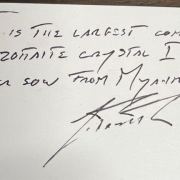 IS THE LARGEST COM
ZONAITE CRYSTAL I
ER SOW FROM MYANM